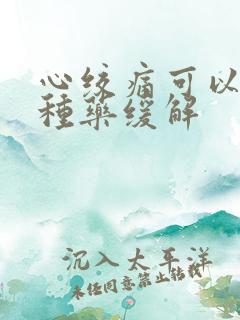 心绞痛可以
種藥缓解
沉入太平洋
未经同意禁止转载